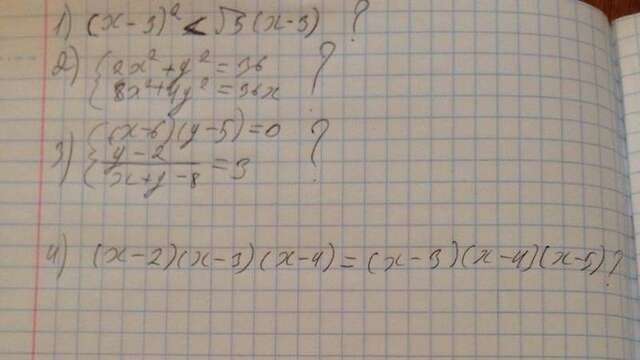 1) (x-3)² < √3(x-3) ?
2) { 2x²+y²=36 ?
{ 8x²+4y²=36x
3) { (x-6)(y-5)=0 ?
{ y-2/x+y-8 = 3
4) (x-2)(x-3)(x-4)=(x-3)(x-4)(x-5)?